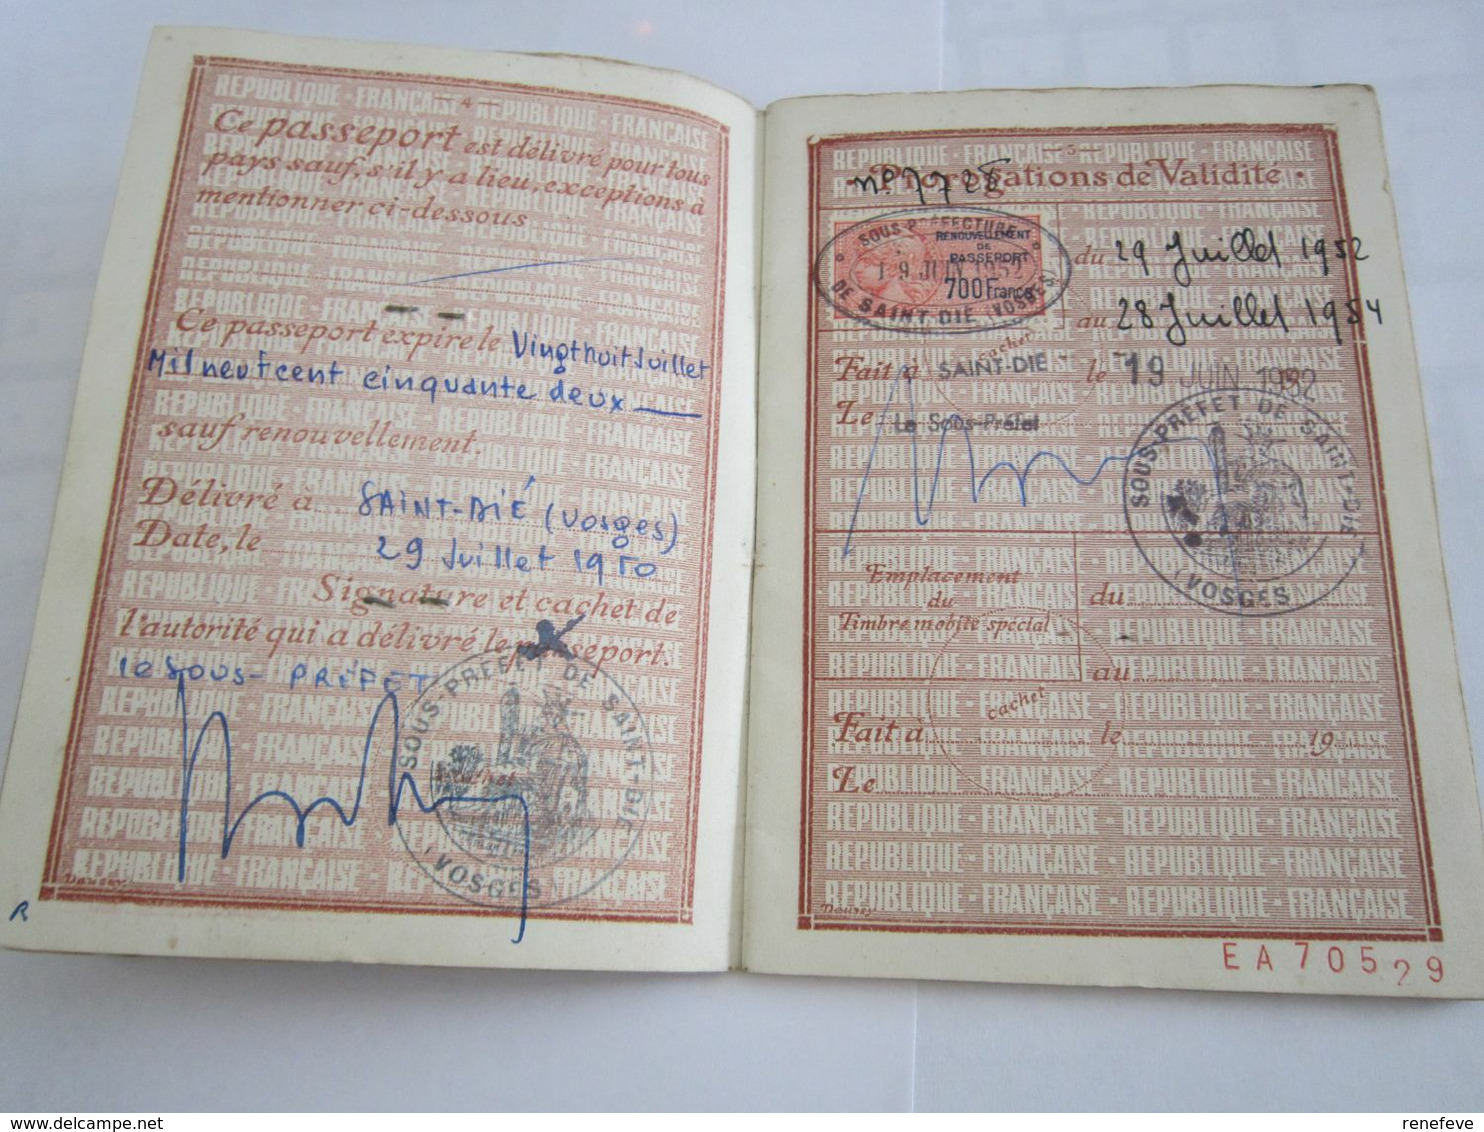 - 4 -
Ce passeport est délivré pour tous
pays sauf, s'il y a lieu, exceptions à
mentionner ci-dessous
Ce passeport expire le Vingthuit Juillet
Mil neuf cent cinquante deux
sauf renouvellement.
Délivré à SAINT-DIÉ (Vosges)
Date, le 29 Juillet 1950
Signature et cachet de
l'autorité qui a délivré le passeport.
le SOUS-PRÉFET
cachet
SOUS-PRÉFET DE SAINT-DIÉ
(VOSGES)
R
- 5 -
Prorogations de Validité
n° 7728
SOUS-PRÉFECTURE
RENOUVELLEMENT
DE
PASSEPORT
19 JUIN 1952
700 Francs
DE SAINT DIE (VOSGES)
du 29 Juillet 1952
au 28 Juillet 1954
cachet
Fait à SAINT-DIE - le - 19 JUIN 1952
Le Le Sous-Préfet
SOUS-PRÉFET DE SAINT-DIE
(VOSGES)
Emplacement
du
Timbre mobile spécial
du
au
cachet
Fait à le 19
Le
RÉPUBLIQUE - FRANÇAISE - RÉPUBLIQUE - FRANÇAISE
EA70529
delcampe.net
renefeve